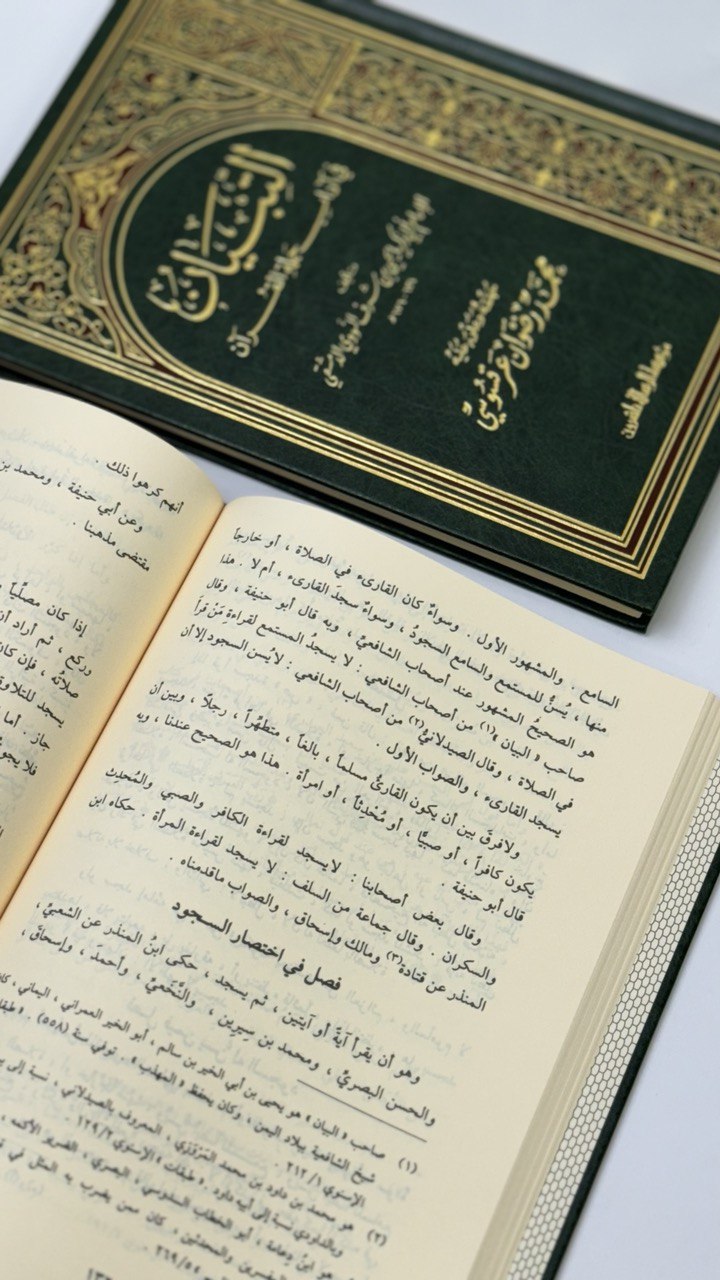 التبيان
في آداب حملة القرآن
تأليف
محمد رضوان عرقسوسي
السامع . والمشهور الأول . وسواءٌ كان القارىء في الصلاة ، أو خارجاً
منها ، يُسنُّ للمستمع والسامع السجودُ ، وسواءٌ سجدَ القارىء ، أم لا . هذا
هو الصحيحُ المشهور عند أصحاب الشافعيِّ ، وبه قال أبو حنيفة ، وقال
صاحب « البيان »(١) من أصحاب الشافعي : لا يسجدُ المستمع لقراءة مَنْ قرأ
في الصلاة ، وقال الصيدلانيُّ(٢) من أصحاب الشافعي : لا يُسن السجود إلا أن
يسجد القارىء ، والصواب الأول .
ولافرقَ بين أن يكون القارئُ مسلماً ، بالغاً ، متطهِّراً ، رجلاً ، وبين أن
يكون كافراً ، أو صبيَّاً ، أو مُحْدِثاً ، أو امرأة . هذا هو الصحيح عندنا ، وبه
قال أبو حنيفة .
وقال بعض أصحابنا : لايسجد لقراءة الكافر والصبي والمُحدِث
والسكران . وقال جماعة من السلف : لا يسجد لقراءة المرأة . حكاه ابن
المنذر عن قتادة(٣) ومالك وإسحاق ، والصواب ماقدمناه .
فصل في اختصار السجود
وهو أن يقرأ آيةً أو آيتين ، ثم يسجد ، حكى ابنُ المنذر عن الشعبيِّ ،
والحسن البصريِّ ، ومحمد بن سِيرِين ، والنَّخَعيِّ ، وأحمدَ ، وإسحاقَ ،
(١) صاحب « البيان » هو يحيى بن أبي الخير بن سالم ، أبو الخير العمراني ، اليماني ، كان
شيخ الشافعية ببلاد اليمن ، وكان يحفظ « المهذب » . توفي سنة (٥٥٨) . « طبقات
الإسنوي ٢١٢/١ .
(٢) هو محمد بن داود بن محمد المَرْوَزي ، المعروف بالصيدلاني ، نسبة إلى
وبالداودي نسبة إلى أبيه داود . « طبقات » الإسنوي ١٢٩/٢ .
هو ابنُ دِعامة ، أبو الخطاب السدوسي ، البصري ، الضرير الأكمه ،
المفسرين والمحدثين . كان ممن يضرب به المثل في
٢٦٩/٥
أنهم كرهوا ذلك .
وعن أبي حنيفة ، ومحمد بن
مقتضى مذهبنا .
إذا كان مصلِّياً
وركع ، ثم أراد أن
صلاتُه ، فإن كان
يسجد للتلاوة
جاز . أما
فلا يجوز